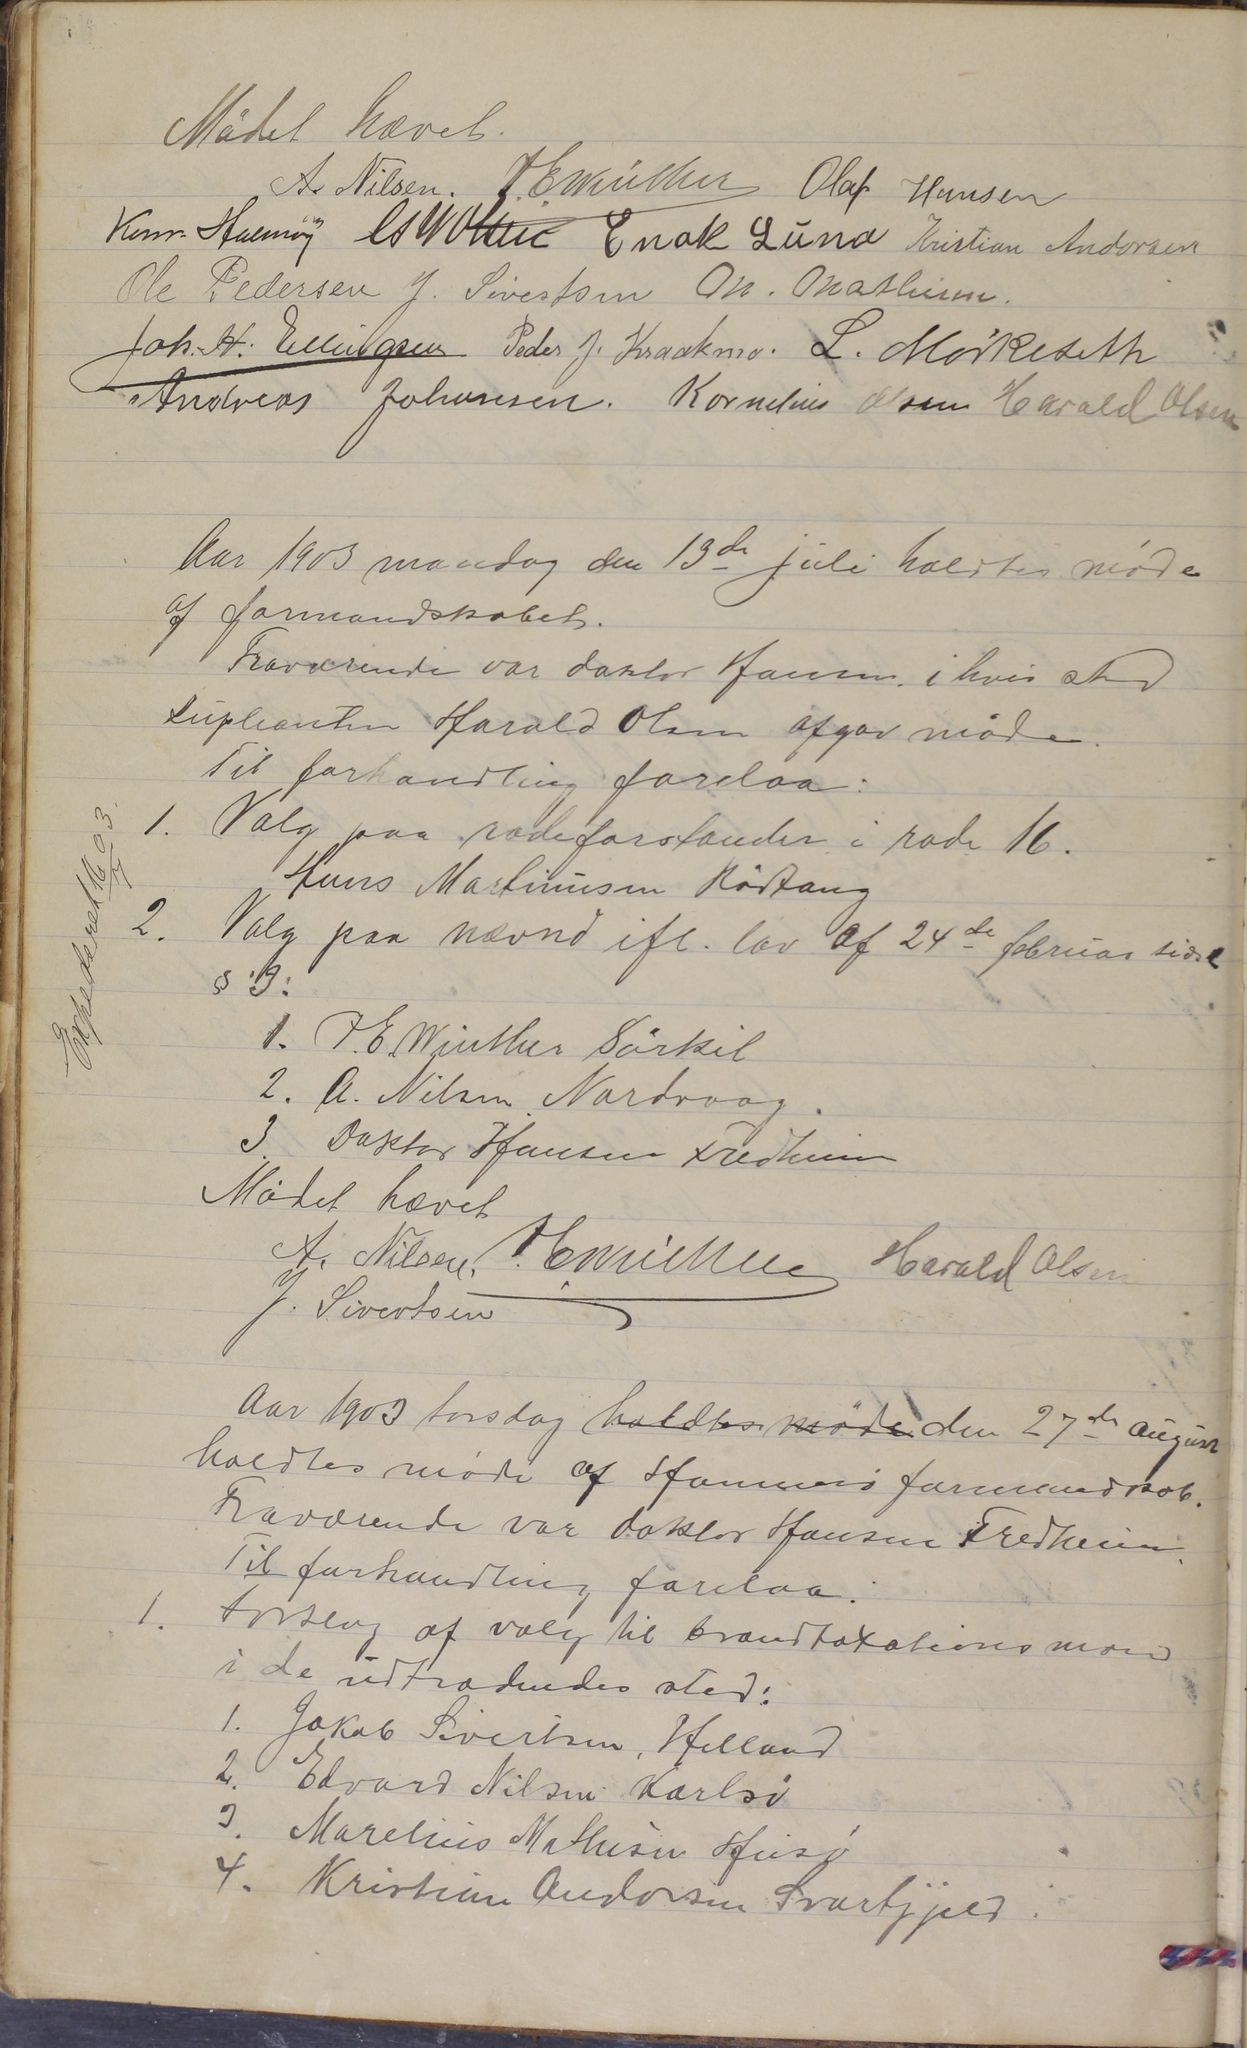 Mödet hævet.
A. Nilsen. P.E. Winther Olaf Hansen
Konr. Halmøy Enok Lund Kristian Andorsen
Ole Pedersen J. Sivertsen M. Mathisen.
Joh. H. Ellingsen Peder J. Kraakmo. L. Mörkeseth
Andreas Johansen. Kornelius Olsen Harald Olsen
Aar 1903 mandag den 13de juli holdtes möde
af formandskabet.
Fraværende var doktor Hansen i hvis sted
supleanten Harald Olsen afgav möde.
Til forhandling forelaa:
1. Valg paa rodeforstander i rode 16.
Hans Martinusen Rödtang
2. Valg paa nævnd ifl. lov af 24de februar sidstl
§ 3:
Expederet 16/7 03.
1. P.E. Winther Sörkil
2. A. Nilsen Nordvaag.
3. Doktor Hansen Fredheim
Mödet hævet
A. Nilsen. P.E. Winther Harald Olsen
J. Sivertsen
Aar 1903 torsdag holdtes möde den 27de august
holdtes möde af Hammerö formandskab.
Fraværende var doktor Hansen Fredheim.
Til forhandling forelaa:
1. Forslag af valg til brandtaxationsmænd
i de udtrædendes sted:
1. Jakob Sivertsen, Helland
2. Edvard Nilsen Karlsö
3. Marelius Mathisen Husö
4. Kristian Andorsen Svartfjeld.